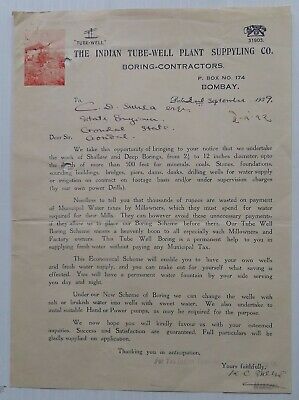 "TUBE-WELL"
31903.
THE INDIAN TUBE-WELL PLANT SUPPLYING CO.
BORING-CONTRACTORS.
P. BOX NO. 174
BOMBAY.
To
Dated September 1929.
C. D.
State Engineer
Gondal State
Gondal
Dear Sir,
We take this opportunity of bringing to your notice that we undertake
the work of Shallow and Deep Borings, from 2½ to 12 inches diameter upto
the depth of from 50 to 500 feet for minerals, coals, Stones, foundations,
sounding of bridges, piers, dams, docks, drilling wells for water supply
or irrigation on contract on footage basis and/or under supervision charges
(by our own power Drills).
Needless to tell you that thousands of rupees are wasted on payment
of Municipal Water taxes by Millowners, which they must spend for water
required for their Mills. They can however avoid these unnecessary payments:
if they allow us to place our Boring Scheme before them. Our Tube Well
Boring Scheme is a heavenly boon to all especially such Millowners and
Factory owners. This Tube Well Boring is a permanent help to you in
supplying fresh water without paying any Municipal Tax.
This Economical Scheme will enable you to have your own wells
and fresh water supply, and you can make out for yourself what saving is
effected. You will have a permanent water fountain by your side serving
you day and night.
Under our New Scheme of Boring we can change the wells with
salt or brakish water into wells with sweet water. We also undertake to
instal suitable Hand or Power pumps, as may be required for the purpose.
We now hope you will kindly favour with your esteemed
enquiries. Success and Satisfaction are guaranteed. Full particulars will be
gladly supplied on application.
Thanking you in anticipation.
Yours faithfully,